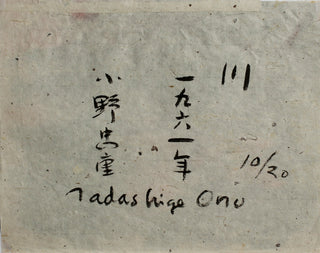 川
一九六一年
小野忠重
10/20
Tadashige Ono